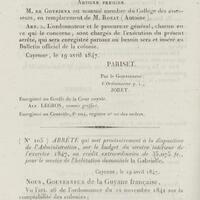 ARTICLE PREMIER.
M. DE GOYRIENA est nommé membre du Collége des asses-
seurs, en remplacement de M. ROUZÉ (Antoine).
ART. 2. L'ordonnateur et le procureur général, chacun en
ce qui le concerne, sont chargés de l'exécution du présent
arrêté, qui sera enregistré partout où besoin sera et inséré au
Bulletin officiel de la colonie.
Cayenne, le 19 avril 1847.
PARISET.
Par le Gouverneur:
L'Ordonnateur p. i.,
JORET.
Enregistré au Greffe de la Cour royale.
ALF. LEGROS, commis greffier.
Enregistré au Contrôle, registre n° des ordres.
(N° 105) ARRÊTÉ qui met provisoirement à la disposition
de l'Administration, sur le budget du service intérieur de
l'exercice 1847, un crédit extraordinaire de 35,075 fr.
pour le service de l'habitation domaniale la Gabrielle.
Cayenne, le 19 avril 1847.
NOUS, GOUVERNEUR de la Guyane française,
Vu l'art. 26 de l'ordonnance du 22 novembre 1841 sur la
comptabilité des colonies;